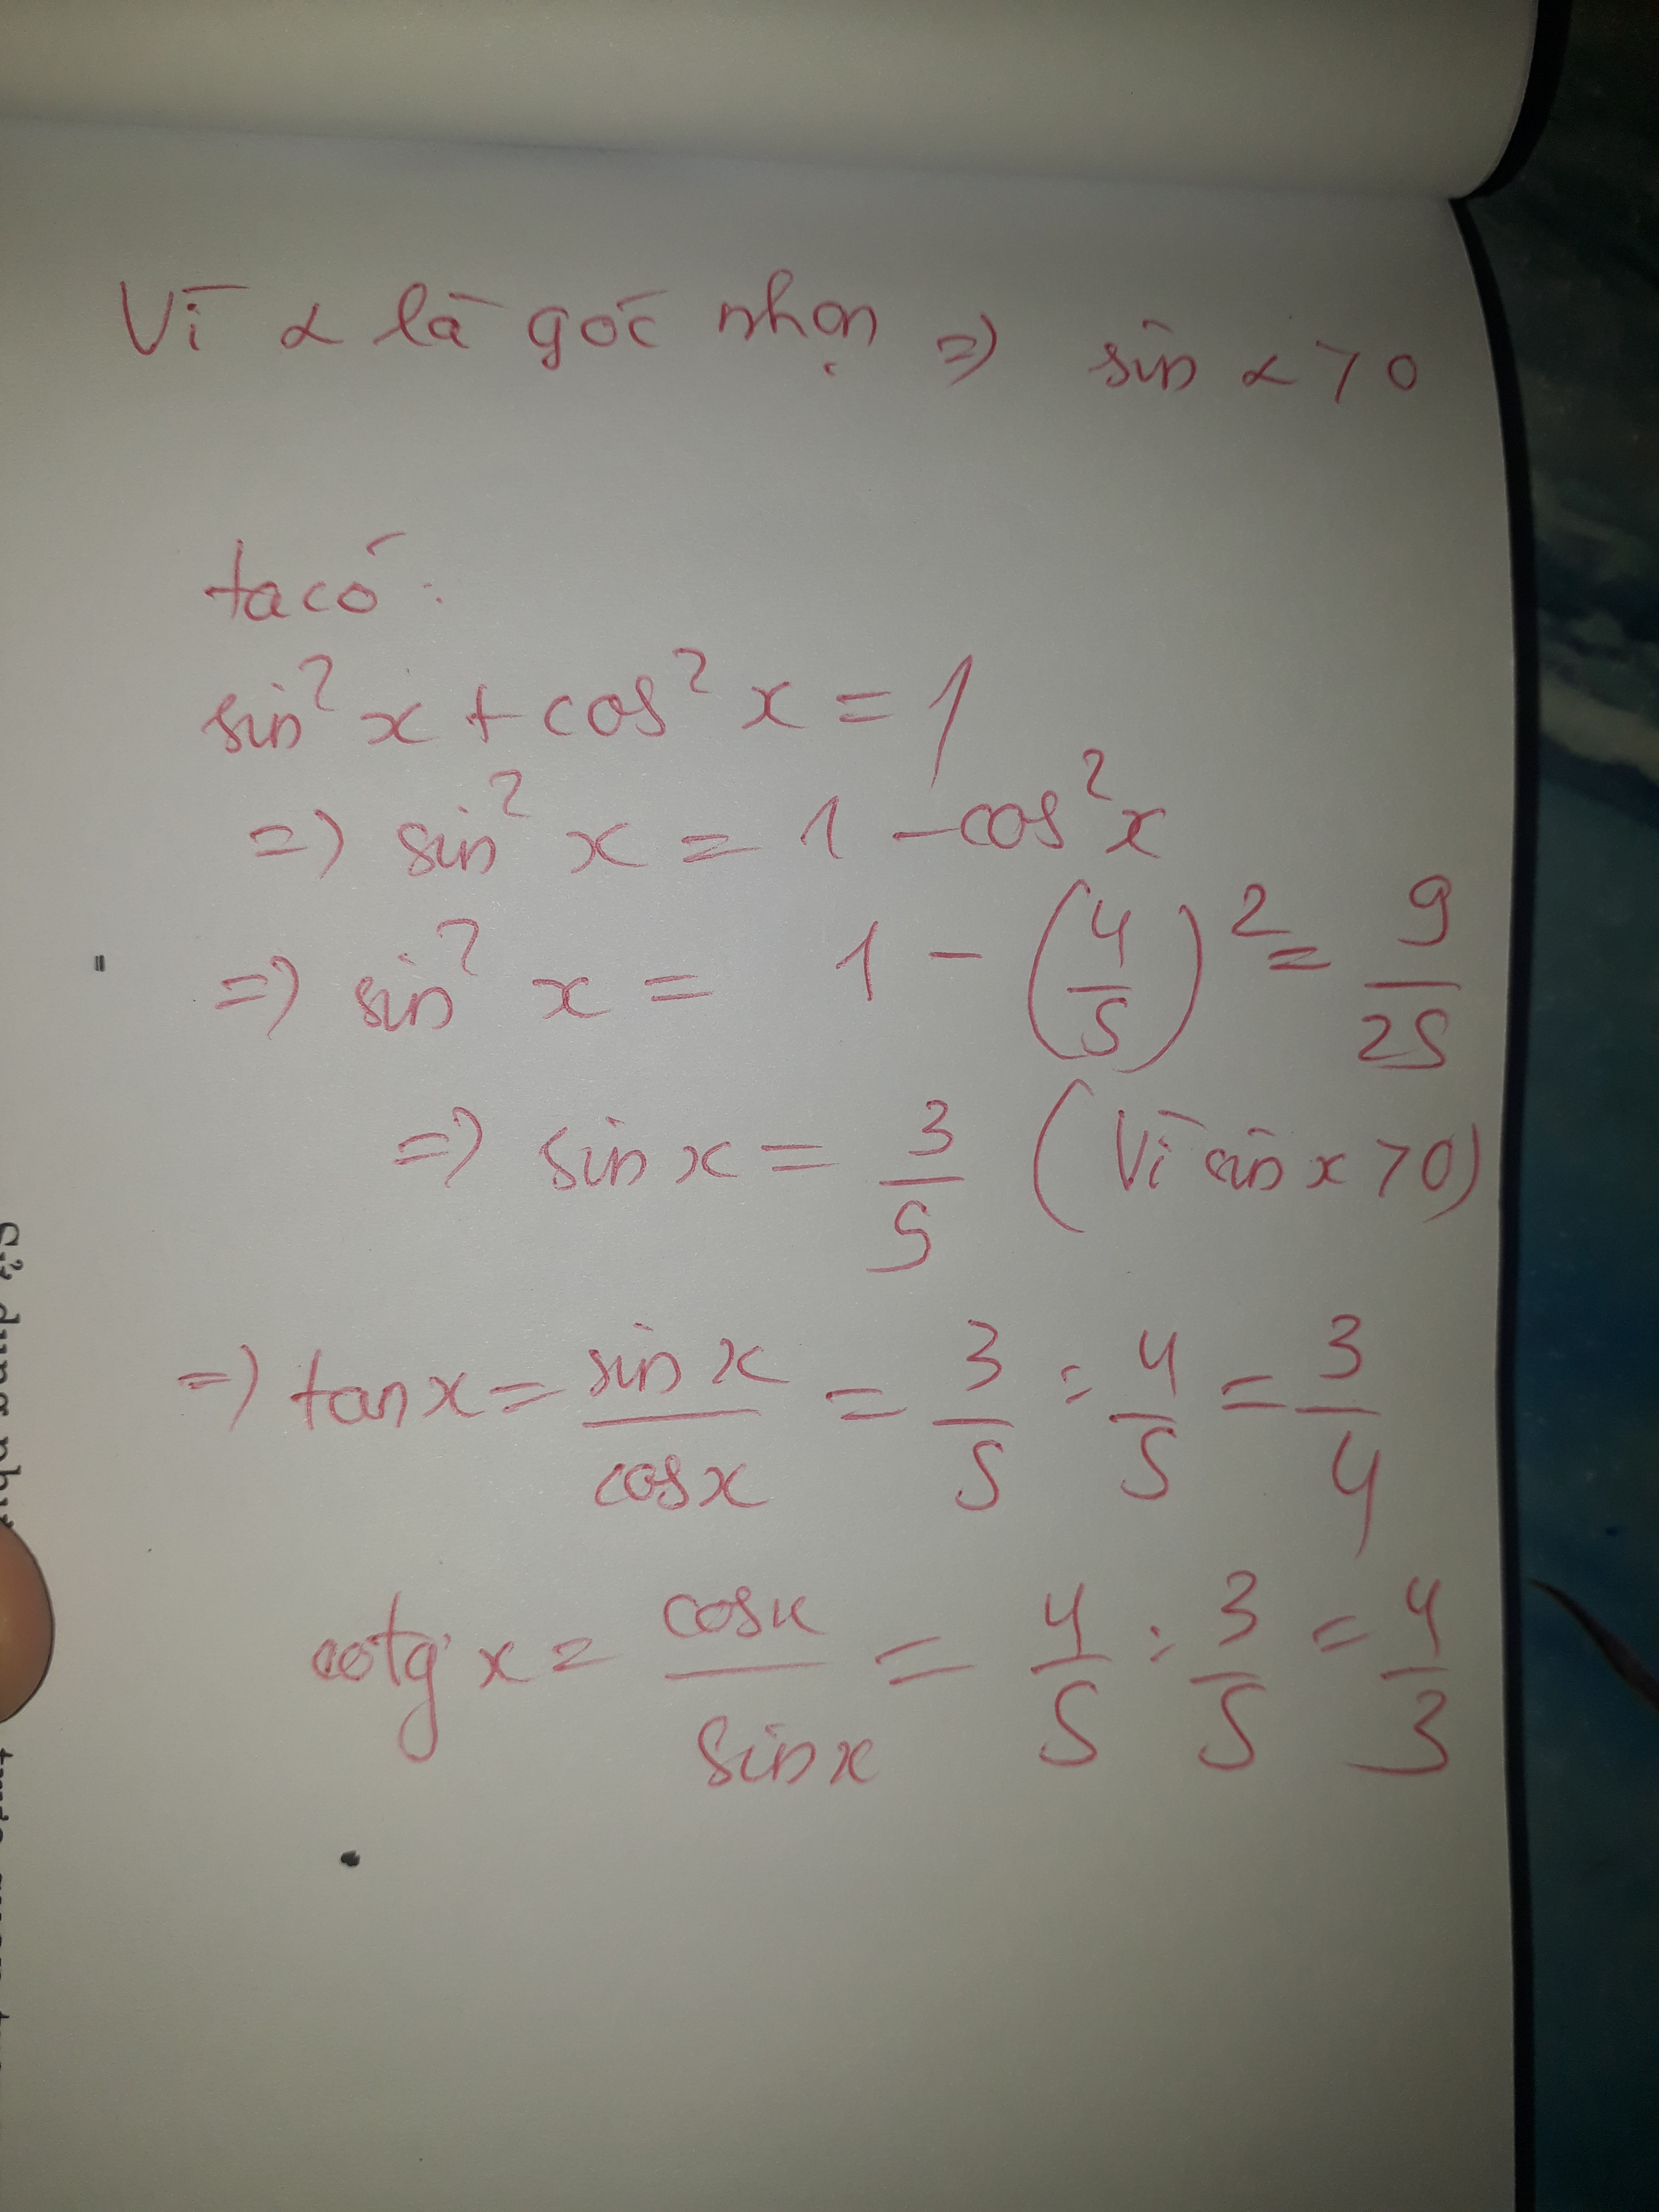 Vì α là góc nhọn => sin α > 0
ta có:
sin² x + cos² x = 1
=> sin² x = 1 - cos² x
=> sin² x = 1 - (4/5)² = 9/25
=> sin x = 3/5 (Vì sin x > 0)
=> tan x = sin x / cos x = 3/5 : 4/5 = 3/4
cotg x = cos x / sin x = 4/5 : 3/5 = 4/3